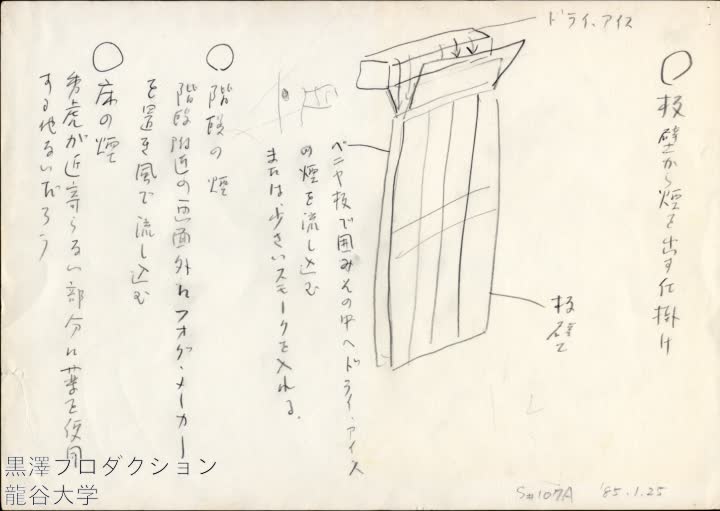 ○板壁から煙を出す仕掛け
ドライアイス
板壁
ベニヤ板で囲みその中へドライアイス
の煙を流し込む
または少さいスモークを入れる。
○階段の煙
階段附近の画面外にフォグ・メーカー
を置き風で流し込む
○床の煙
秀虎が近寄らない部分に葉を使用
する他ないだろう
S#107A '85.1.25
黒澤プロダクション
龍谷大学